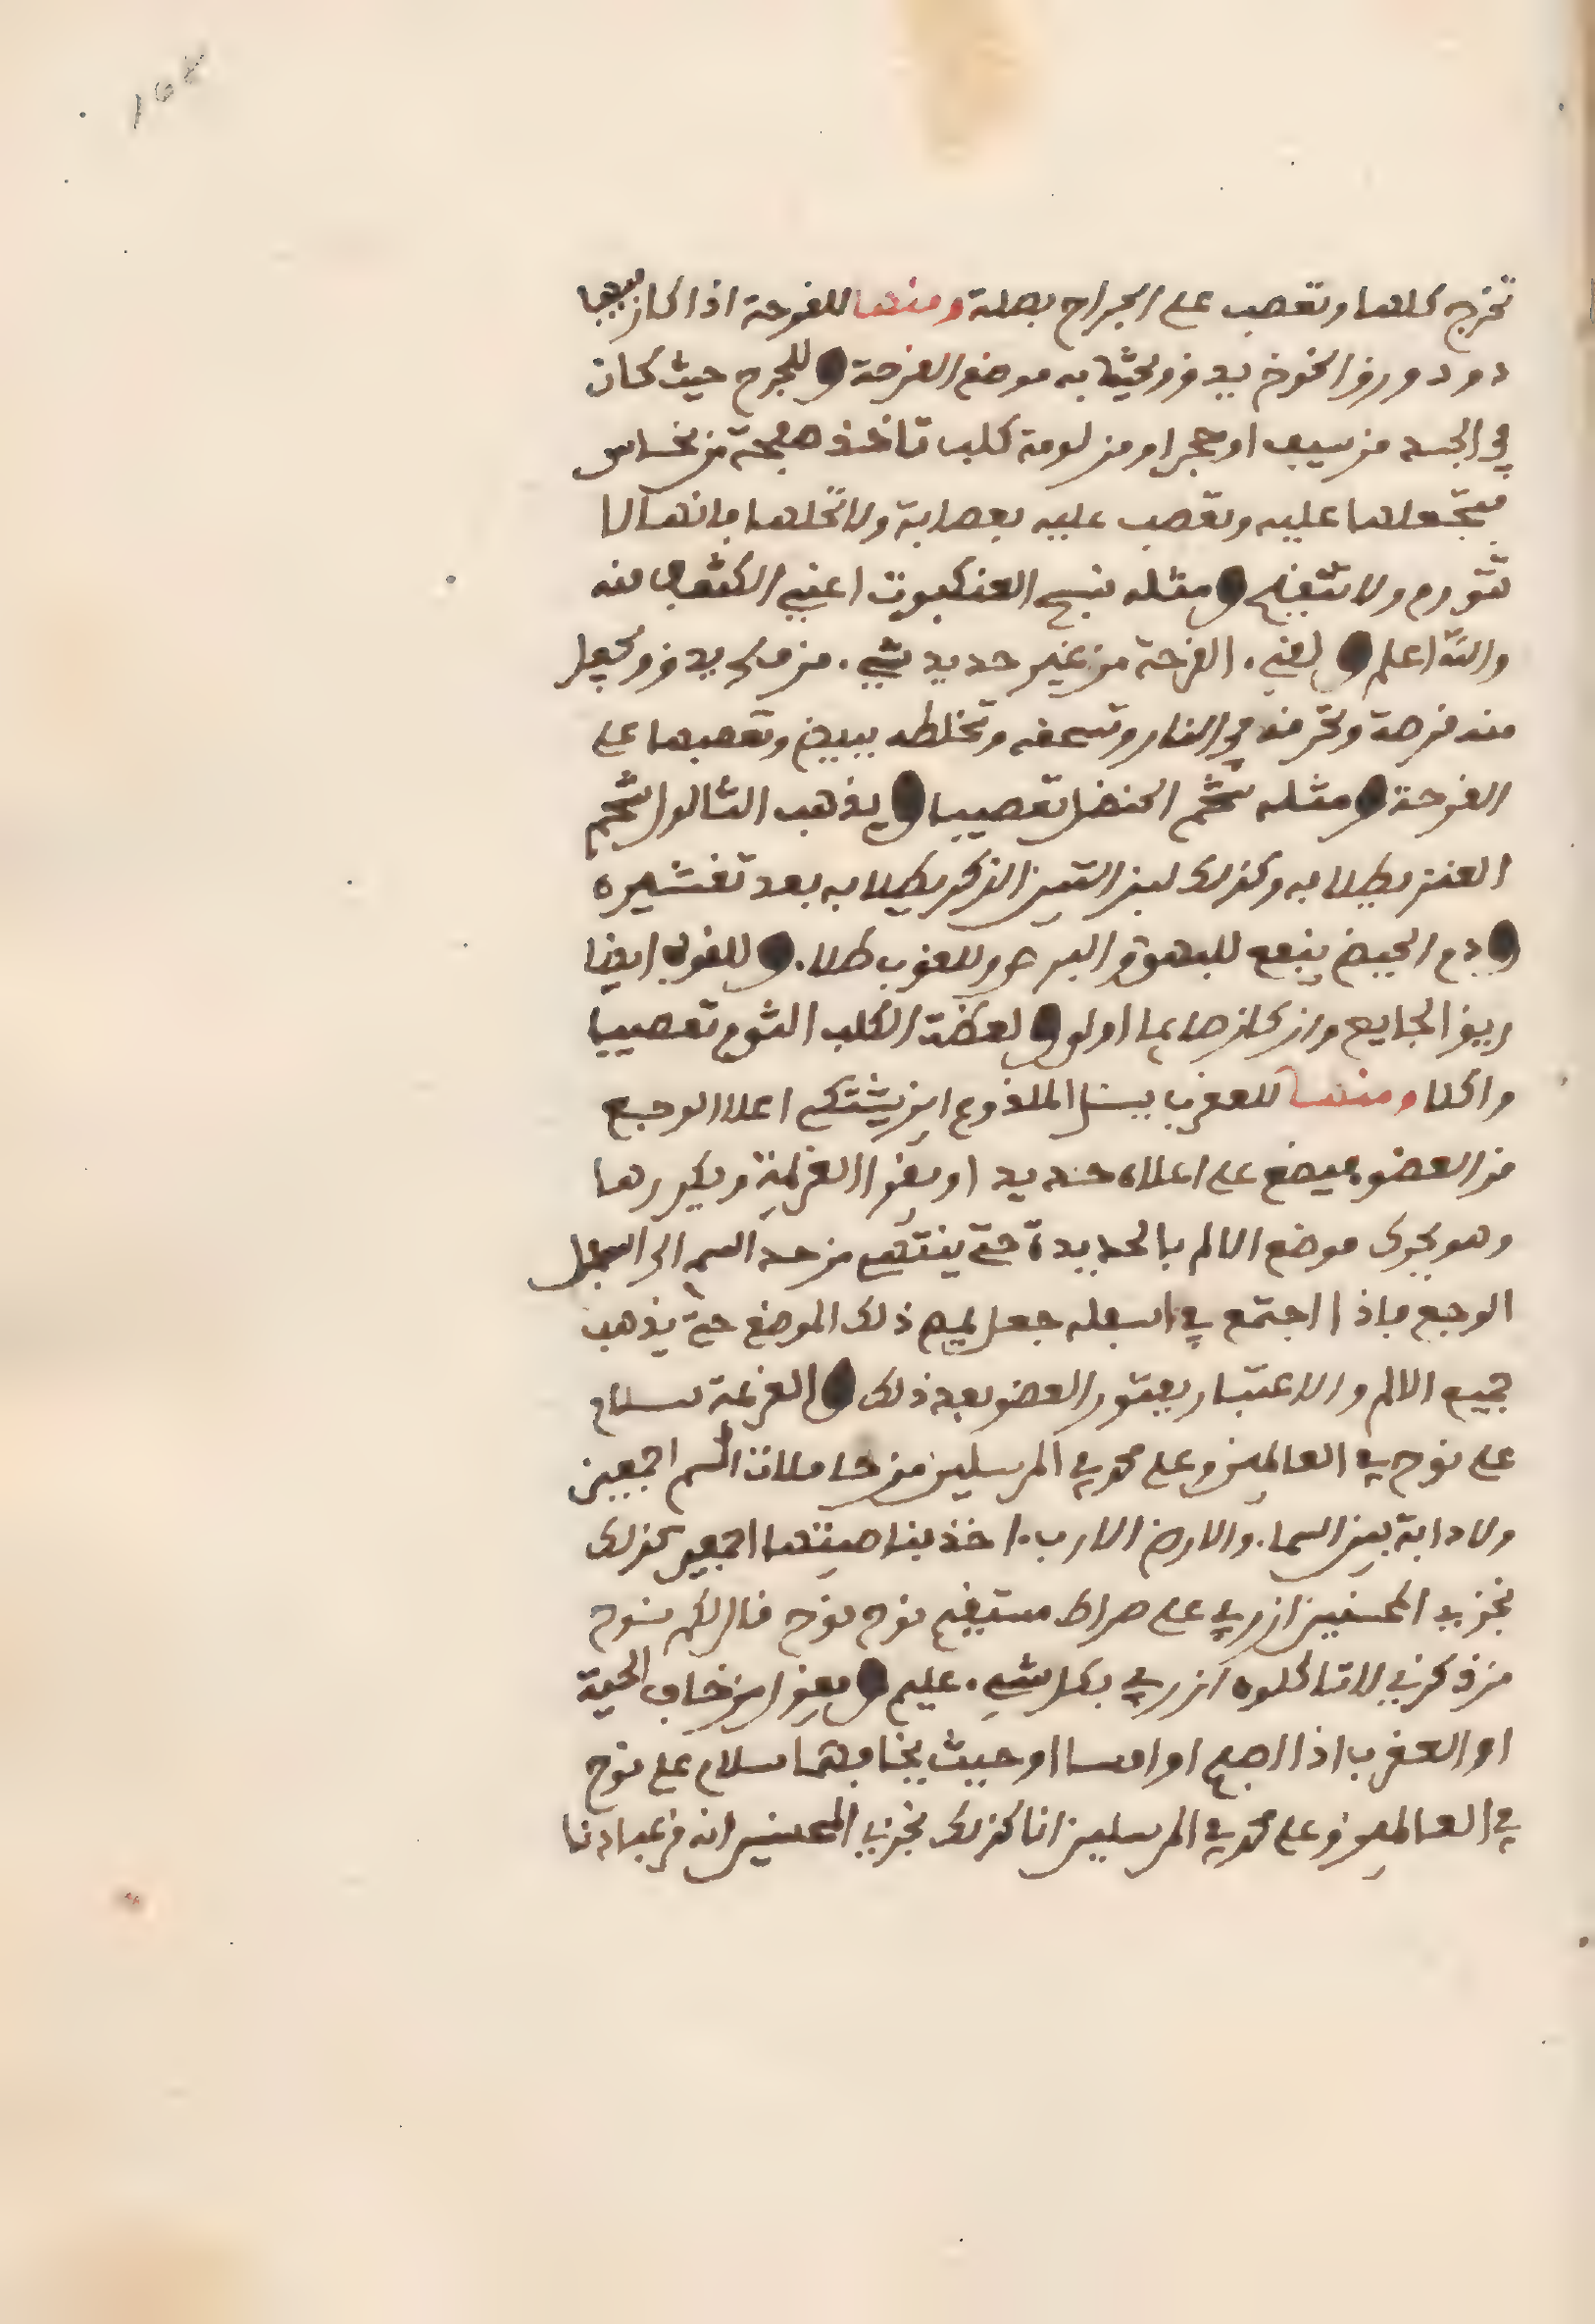 تخرج كلها وتعصب على الجراح بصلة ومنها للقرحة اذا كان فيها
دود ورق الخوخ يدق ويحشا به موضع القرحة وللجرح حيث كان
في الجسد من سيف او حجر او من لومة كلب تاخذ صفيحة من نحاس
فتجعلها عليه وتعصب عليه بعصابة ولا تحلها فانها لا
تتورم ولا تتقيح ومثله نسج العنكبوت اعني الكثف منه
والله اعلم القرحة من غير حديد شيء يدق ويجعل
منه قرصة وتحرقه في النار وتسحقه وتخلطه ببيض وتعصبها على
القرحة ومثله شحم الحنضل تعصيبا ويذهب الثالول شحم
العنز يطلا به وكذلك لبن التين الذكر يطلا به بعد تقشيره
ودم الحيض ينفع للبهق والبرص وللقوب طلاء وللقوب ايضا
ريق الجايع وان كان صايما اولى ولعضة الكلب الثوم تعصيبا
واكلا ومنها للعقرب يسئل الملذوع اين يشتكي اعلا الوجع
من العضو فيضع على اعلاه حديد او يقرا العزيمة ويكررها
وهو يجرى موضع الالم بالحديدة حتى ينتهي من حد السم الى اسفل
الوجع فاذا اجتمع في اسفله جعل يمص ذلك الموضع حتى يذهب
جميع الالم والاعتبار بفتور العضو بعد ذلك والعزيمة سلام
على نوح في العالمين وعلى محمد في المرسلين من حاملات السم اجمعين
ولا دابة بين السماء والارض الا رب اخذ بناصيتها اجمعين كذلك
نجزي المحسنين ان ربي على صراط مستقيم نوح نوح قال لكم نوح
من ذكرني لا تاكلوه ان ربي بكل شيء عليم ويقرا من خاف الحية
او العقرب اذا اصبح او امسا او حيث يخافهما سلام على نوح
في العالمين وعلى محمد في المرسلين انا كذلك نجزي المحسنين انه من عبادنا